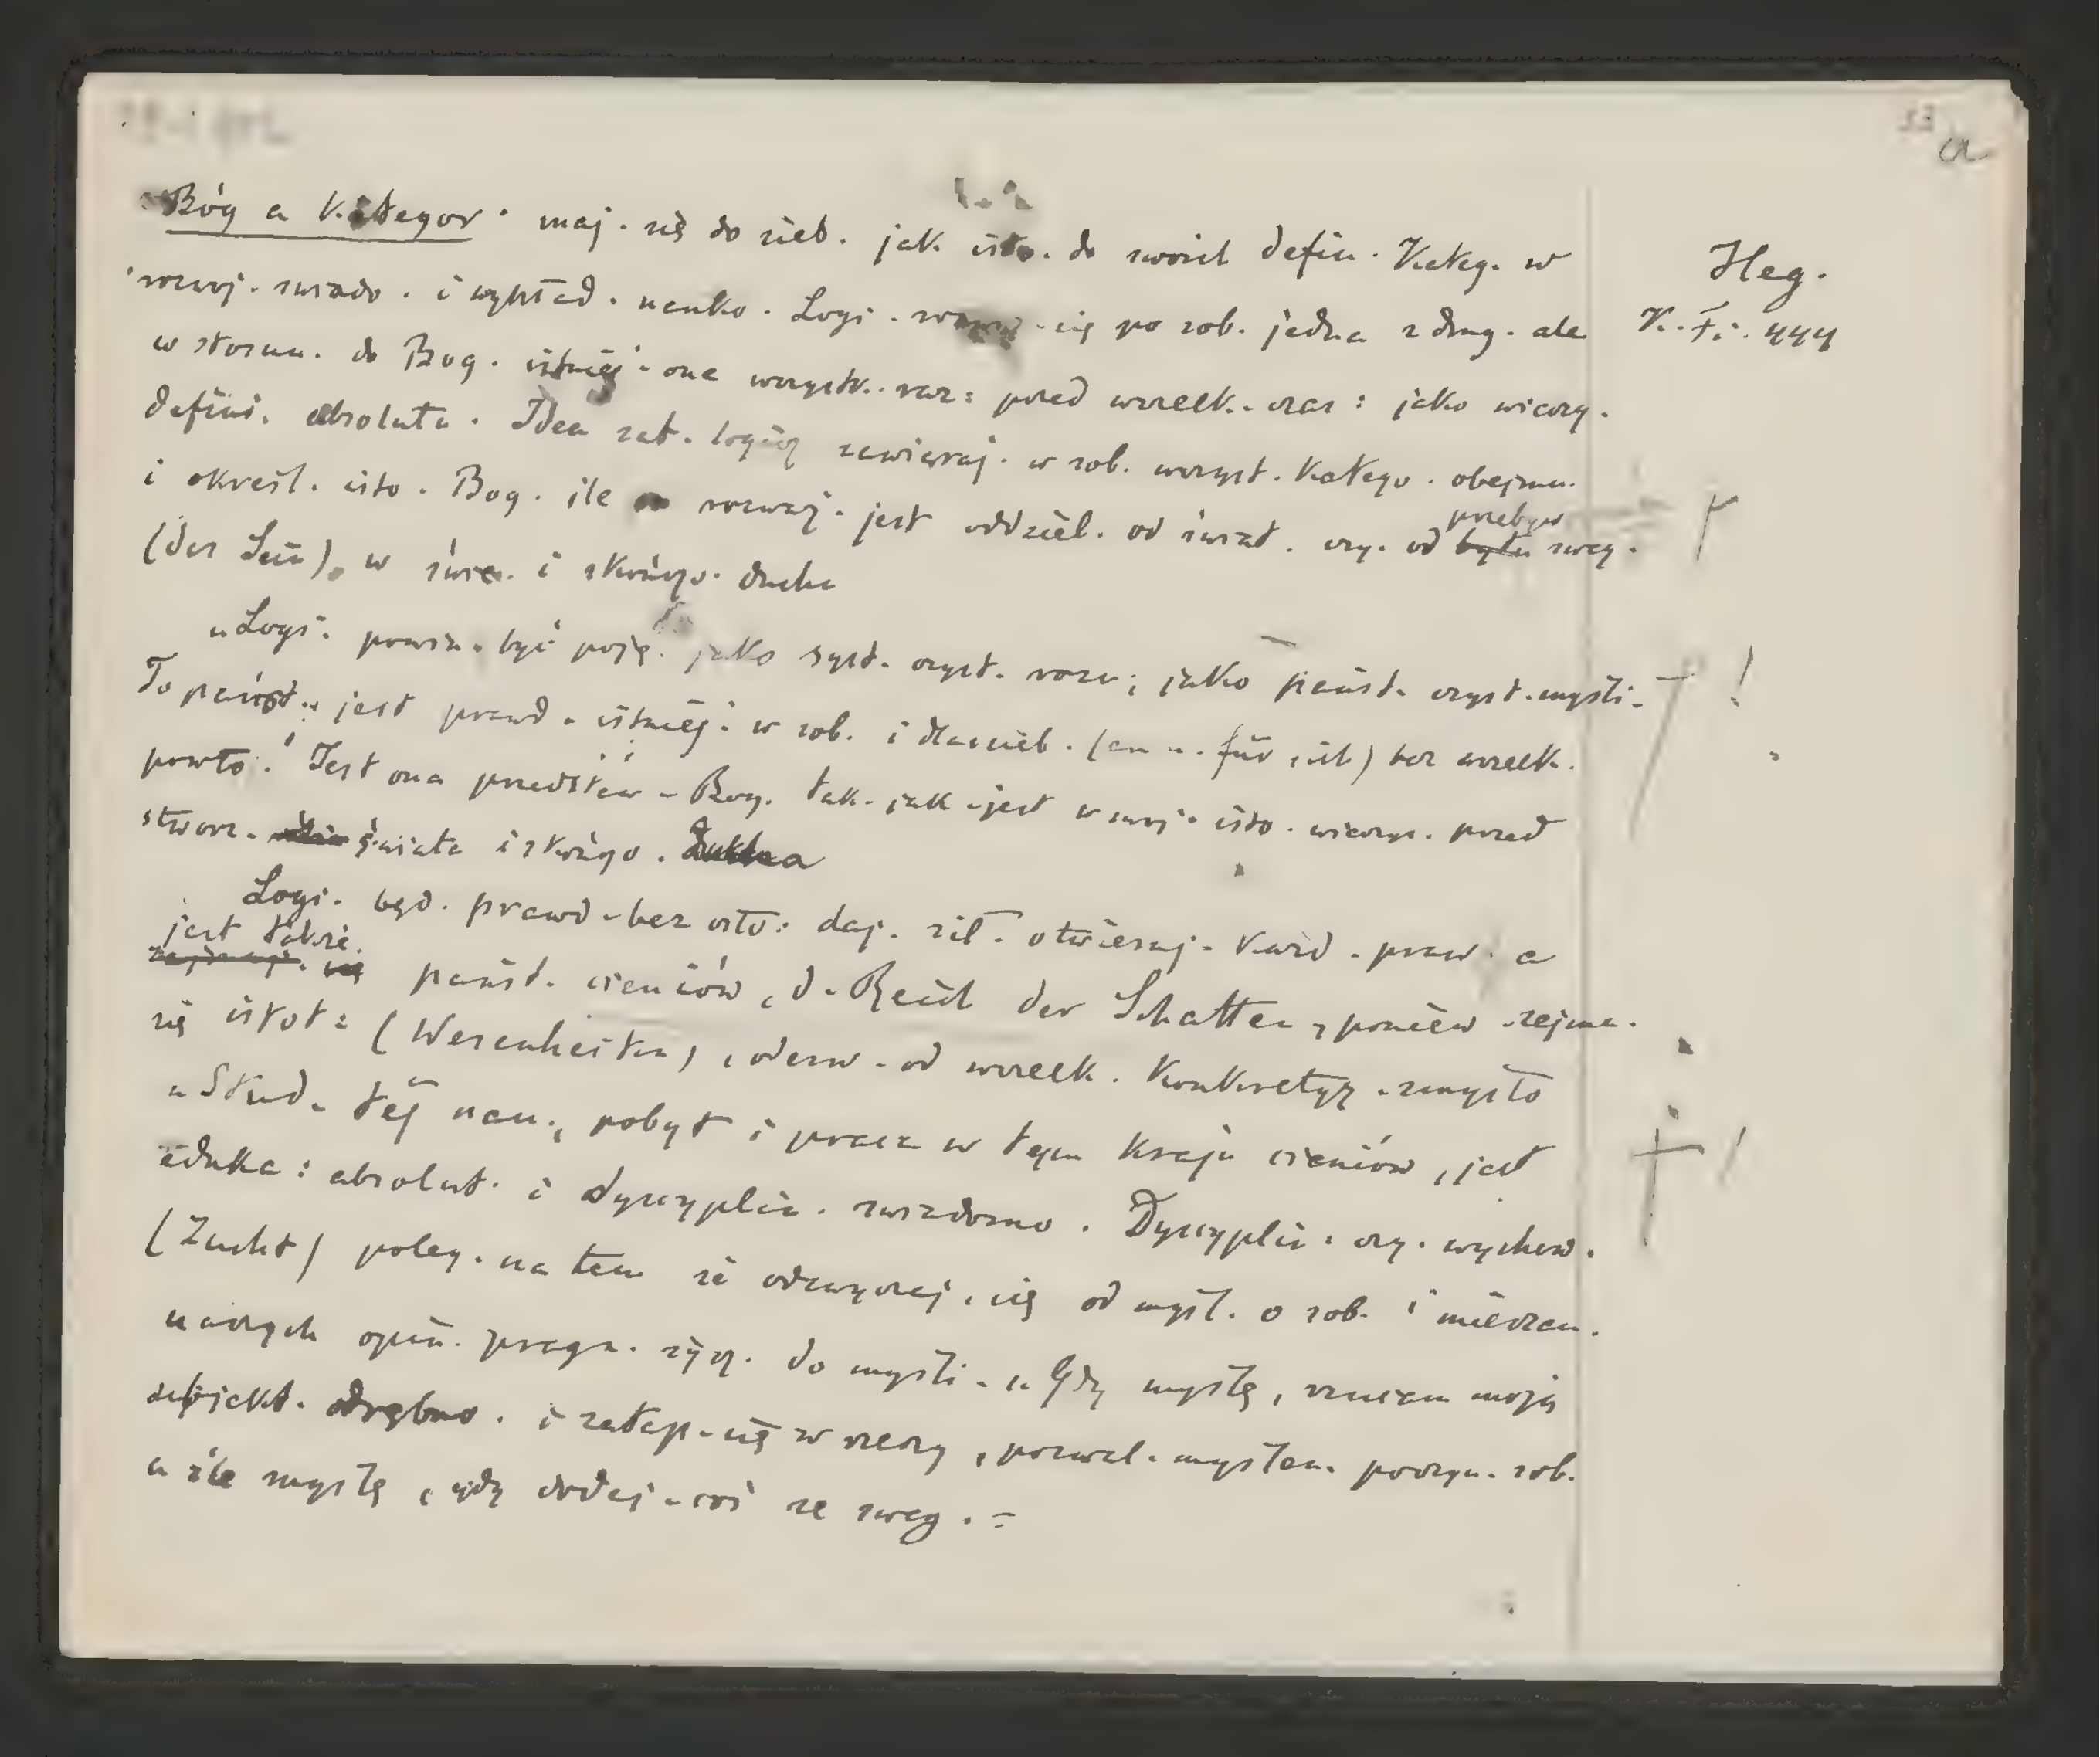 Bóg a Kategor. maj. się do sieb. jak isto. do swoich defin. Kateg. w
rozwoj. świado. i wykład. nauko. Logi. się po sob. jedna z drug. ale
w stosun. do Bog. istniej. one wszystk. raz: przed wszelk. czas: jako wieczy.
defini. absoluta. Idea zat. logicz zawieraj. w sob. wszyst. Katego. obejmu.
i określ. isto. Bog. ile rozważ. jest oddziel. od świat. czy. od bytu sweg.
przebyw
(der Sein), w świe. i skończo. ducha
„Logi. powin. być poję. jako syst. czyst. rozu; jako państ. czyst. myśli.
To państ. jest prawd. istniej. w sob. i dla sieb. (an u. für sich) bez wszelk.
powło. Jest ona przedstaw. Bog. tak. jak jest w swoj. isto. wieczys. przed
stworz. świata i skończo. Ducha
Logi. będ. prawd. bez osło: daj. sił. otwieraj. każd. praw. a
jest także
zajmuj. się państ. cieniów, d. Reich der Schatten, poniew. zejmu.
się istot: (Wesenheiten), oderw. od wszelk. Konkretycz. zmysło
„Stud. tej nau., pobyt i praca w tym kraju cieniów, jest
eduka: absolut. i dyscyplin. świadomo. Dyscyplin. czy. wychow.
(Zucht) poleg. na tem że odzwyczaj. się od myśl. o sob. i mieszan.
naszych opin. pragn. życz. do myśli. „Gdy myślę, rzucam moją
subjekt. odrębno. i zatap. się w rzeczy, pozwal. myślen. poczyn. sob.
a źle myślę, gdy dodaj. coś ze sweg.=
Heg.
K. Fi. 444